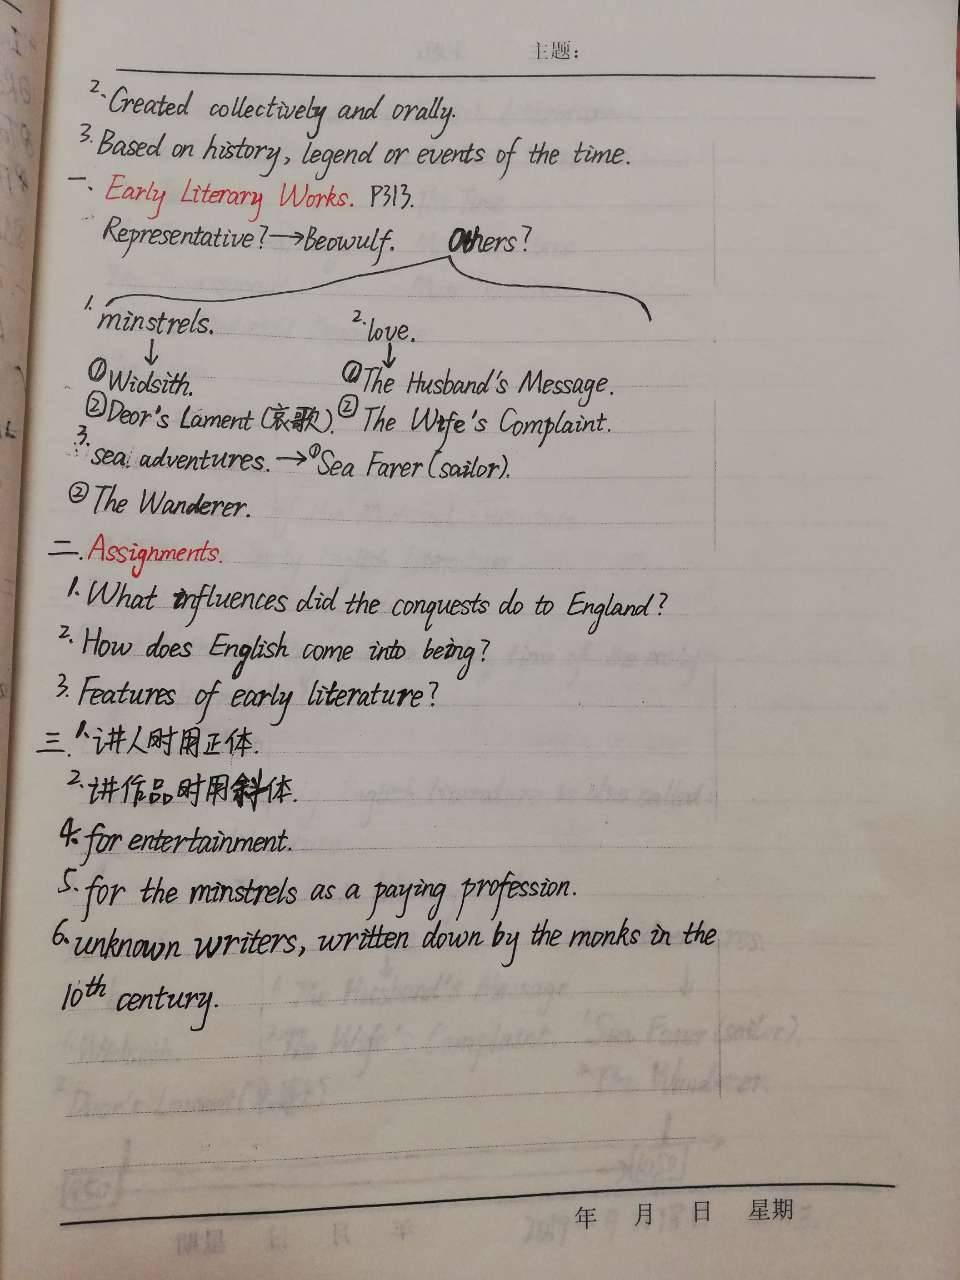 主题:
2. Created collectively and orally.
3. Based on history, legend or events of the time.
一. Early Literary Works. P313.
Representative? → Beowulf. Others?
1. minstrels. 2. love.
↓ ↓
① Widsith. ① The Husband's Message.
② Deor's Lament (哀歌). ② The Wife's Complaint.
3. sea adventures. → ① Sea Farer (sailor).
② The Wanderer.
二. Assignments.
1. What influences did the conquests do to England?
2. How does English come into being?
3. Features of early literature?
三. 1. 讲人时用正体.
2. 讲作品时用斜体.
4. for entertainment.
5. for the minstrels as a paying profession.
6. unknown writers, written down by the monks in the
10th century.
年 月 日 星期